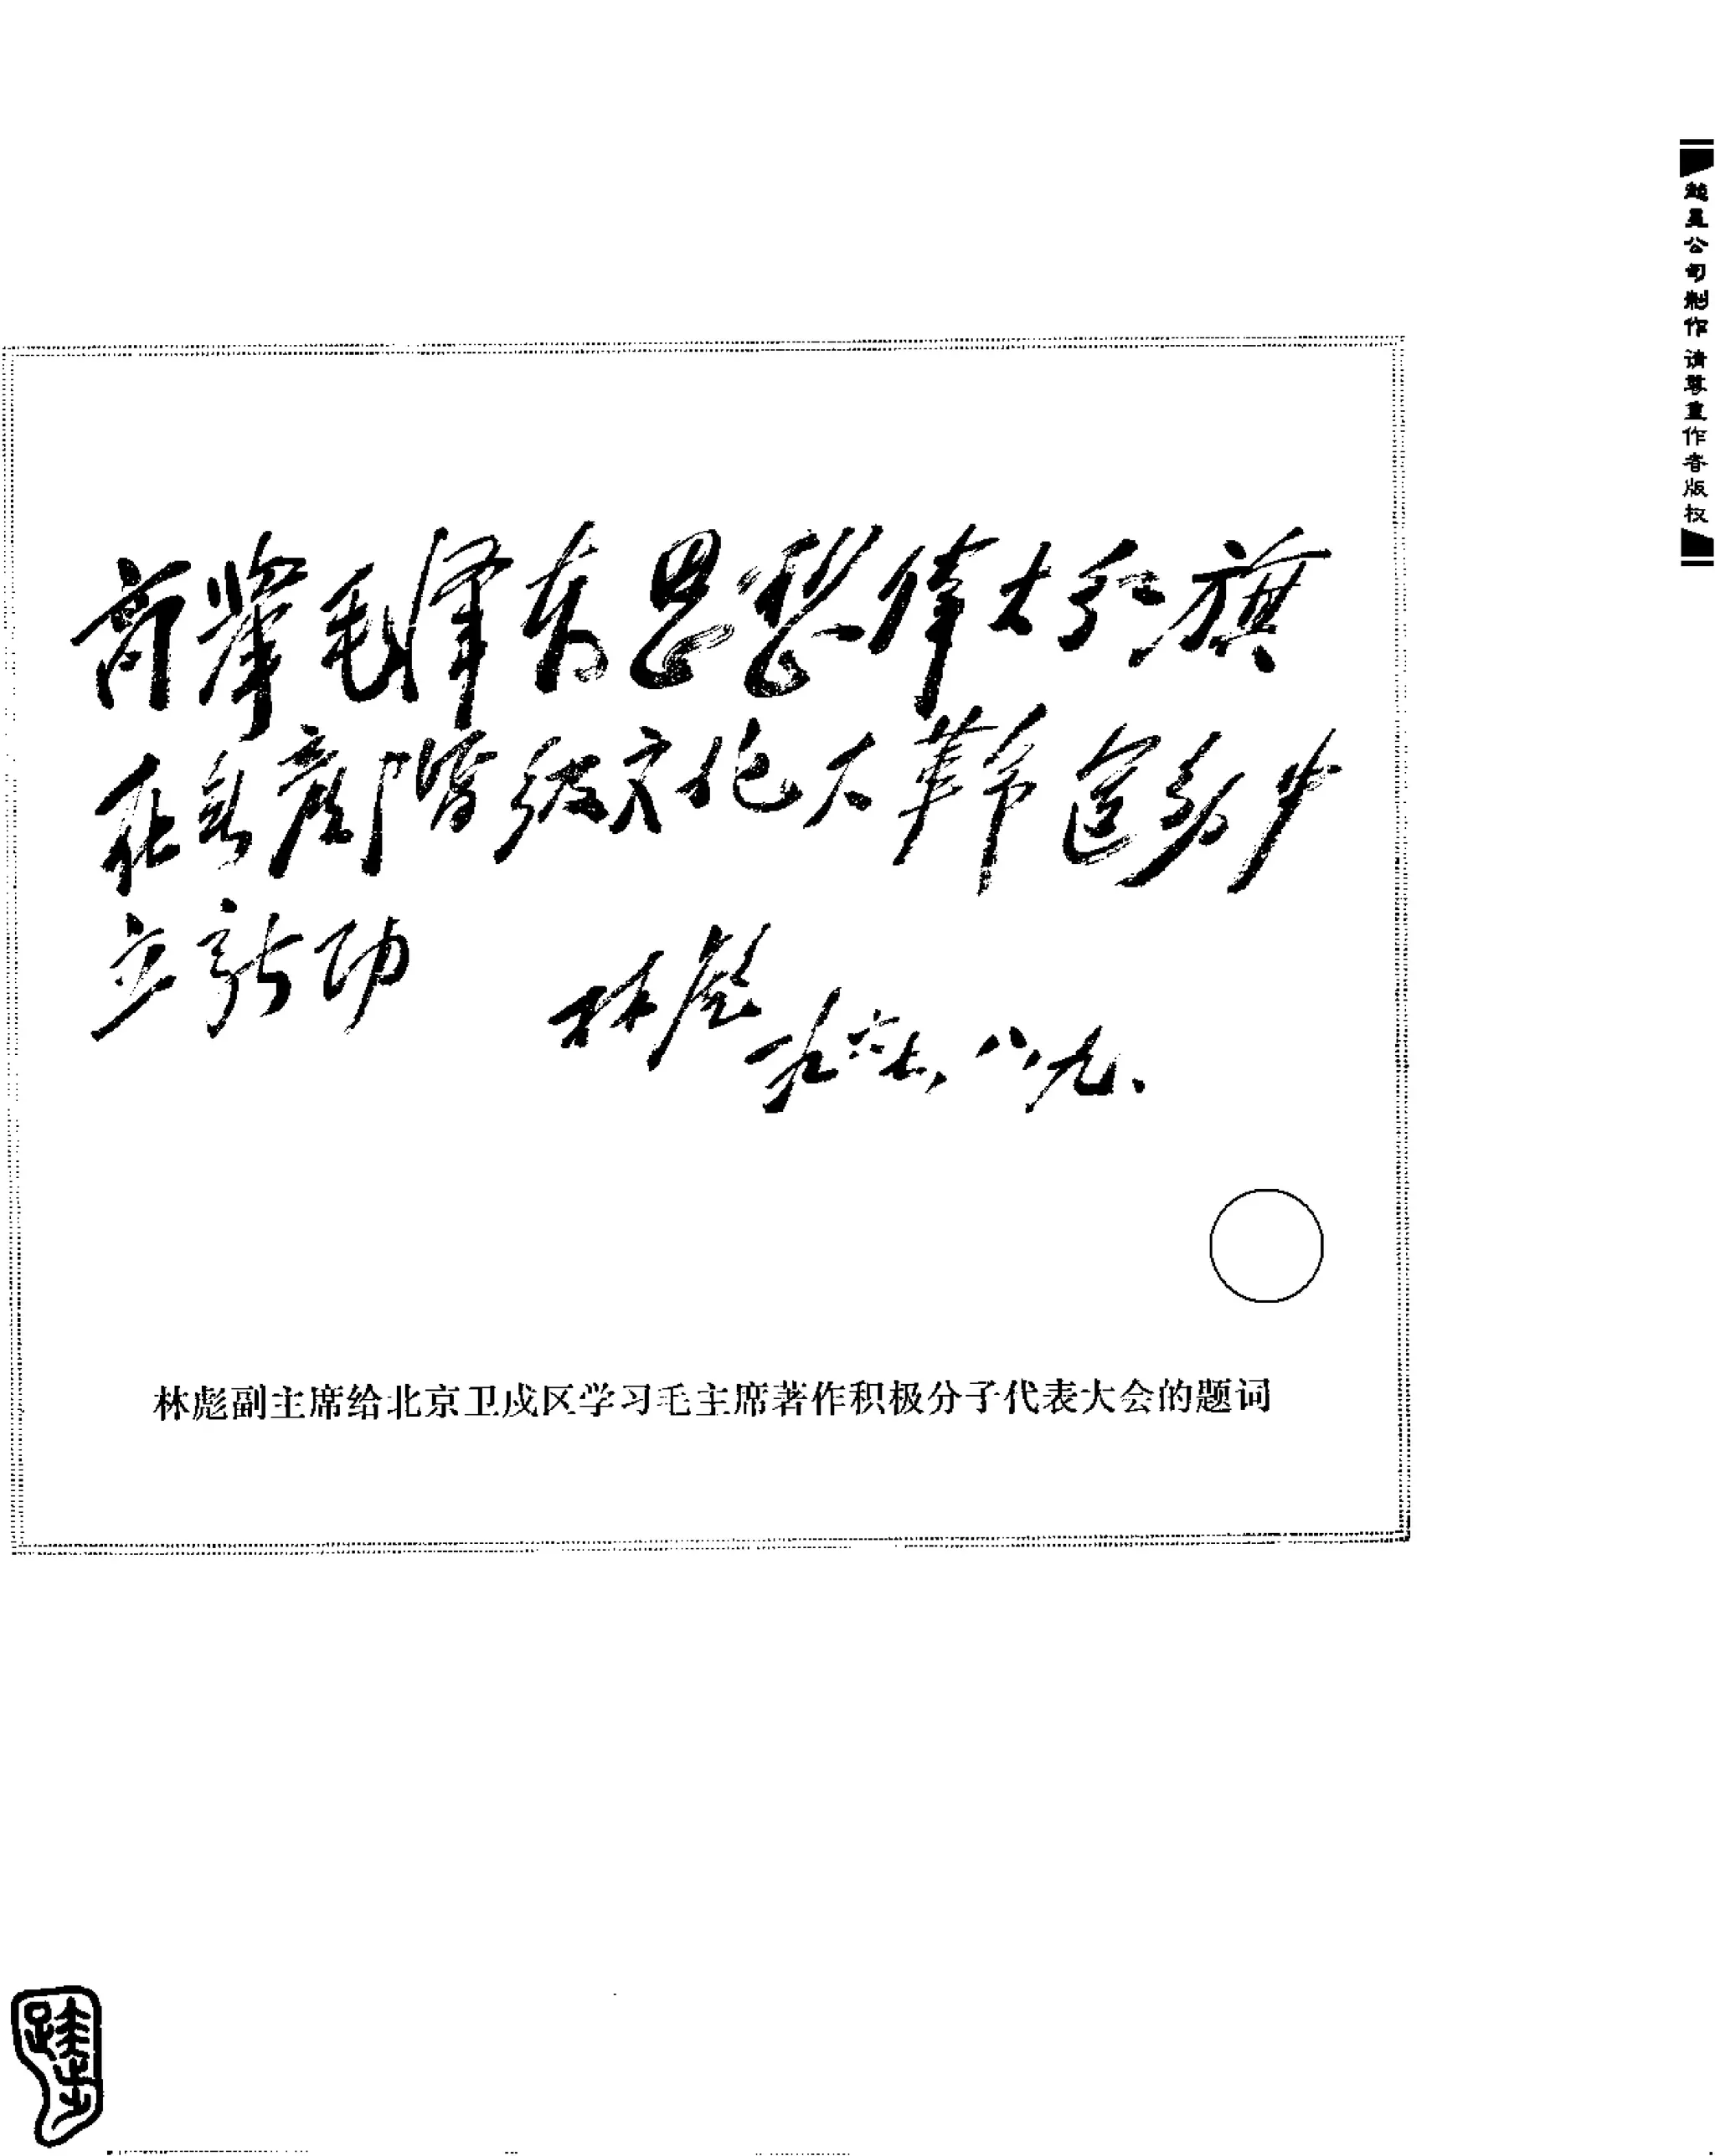 高举毛泽东思想伟大红旗
在无产阶级文化大革命运动中
立新功 林彪
一九六七、八、九、
林彪副主席给北京卫戍区学习毛主席著作积极分子代表大会的题词
超星公司制作 请尊重作者版权